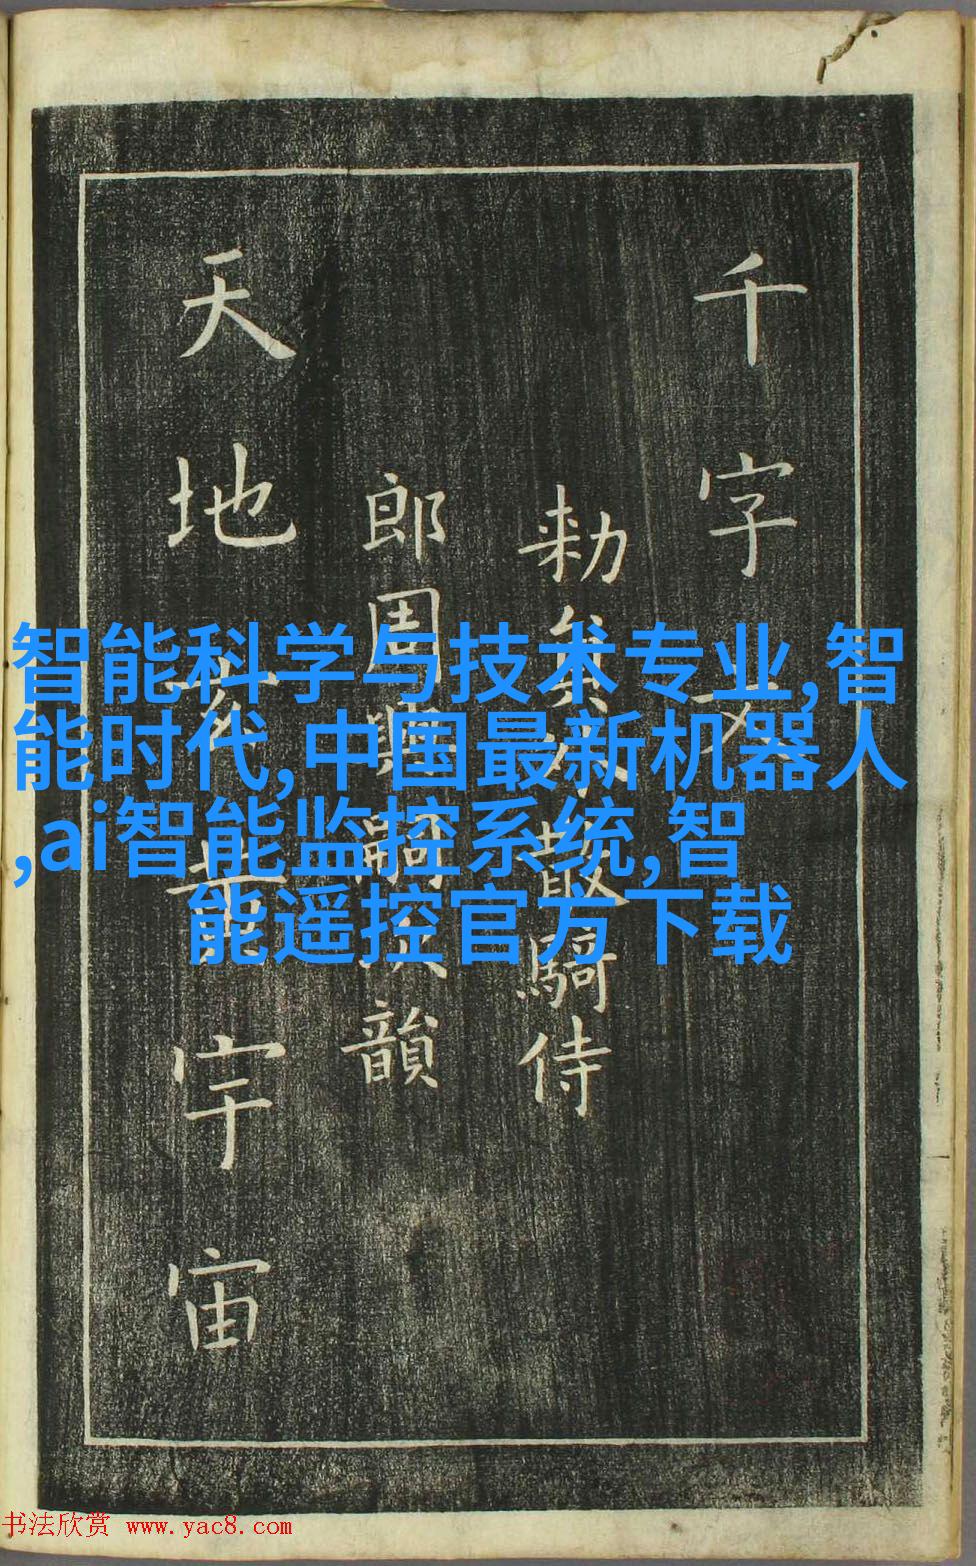 千字文
勑員外散騎侍
郎周興嗣次韻
天地玄黃宇宙
智能科学与技术专业,智
能时代,中国最新机器人
,ai智能监控系统,智
能遥控官方下载
书法欣赏 www.yac8.com